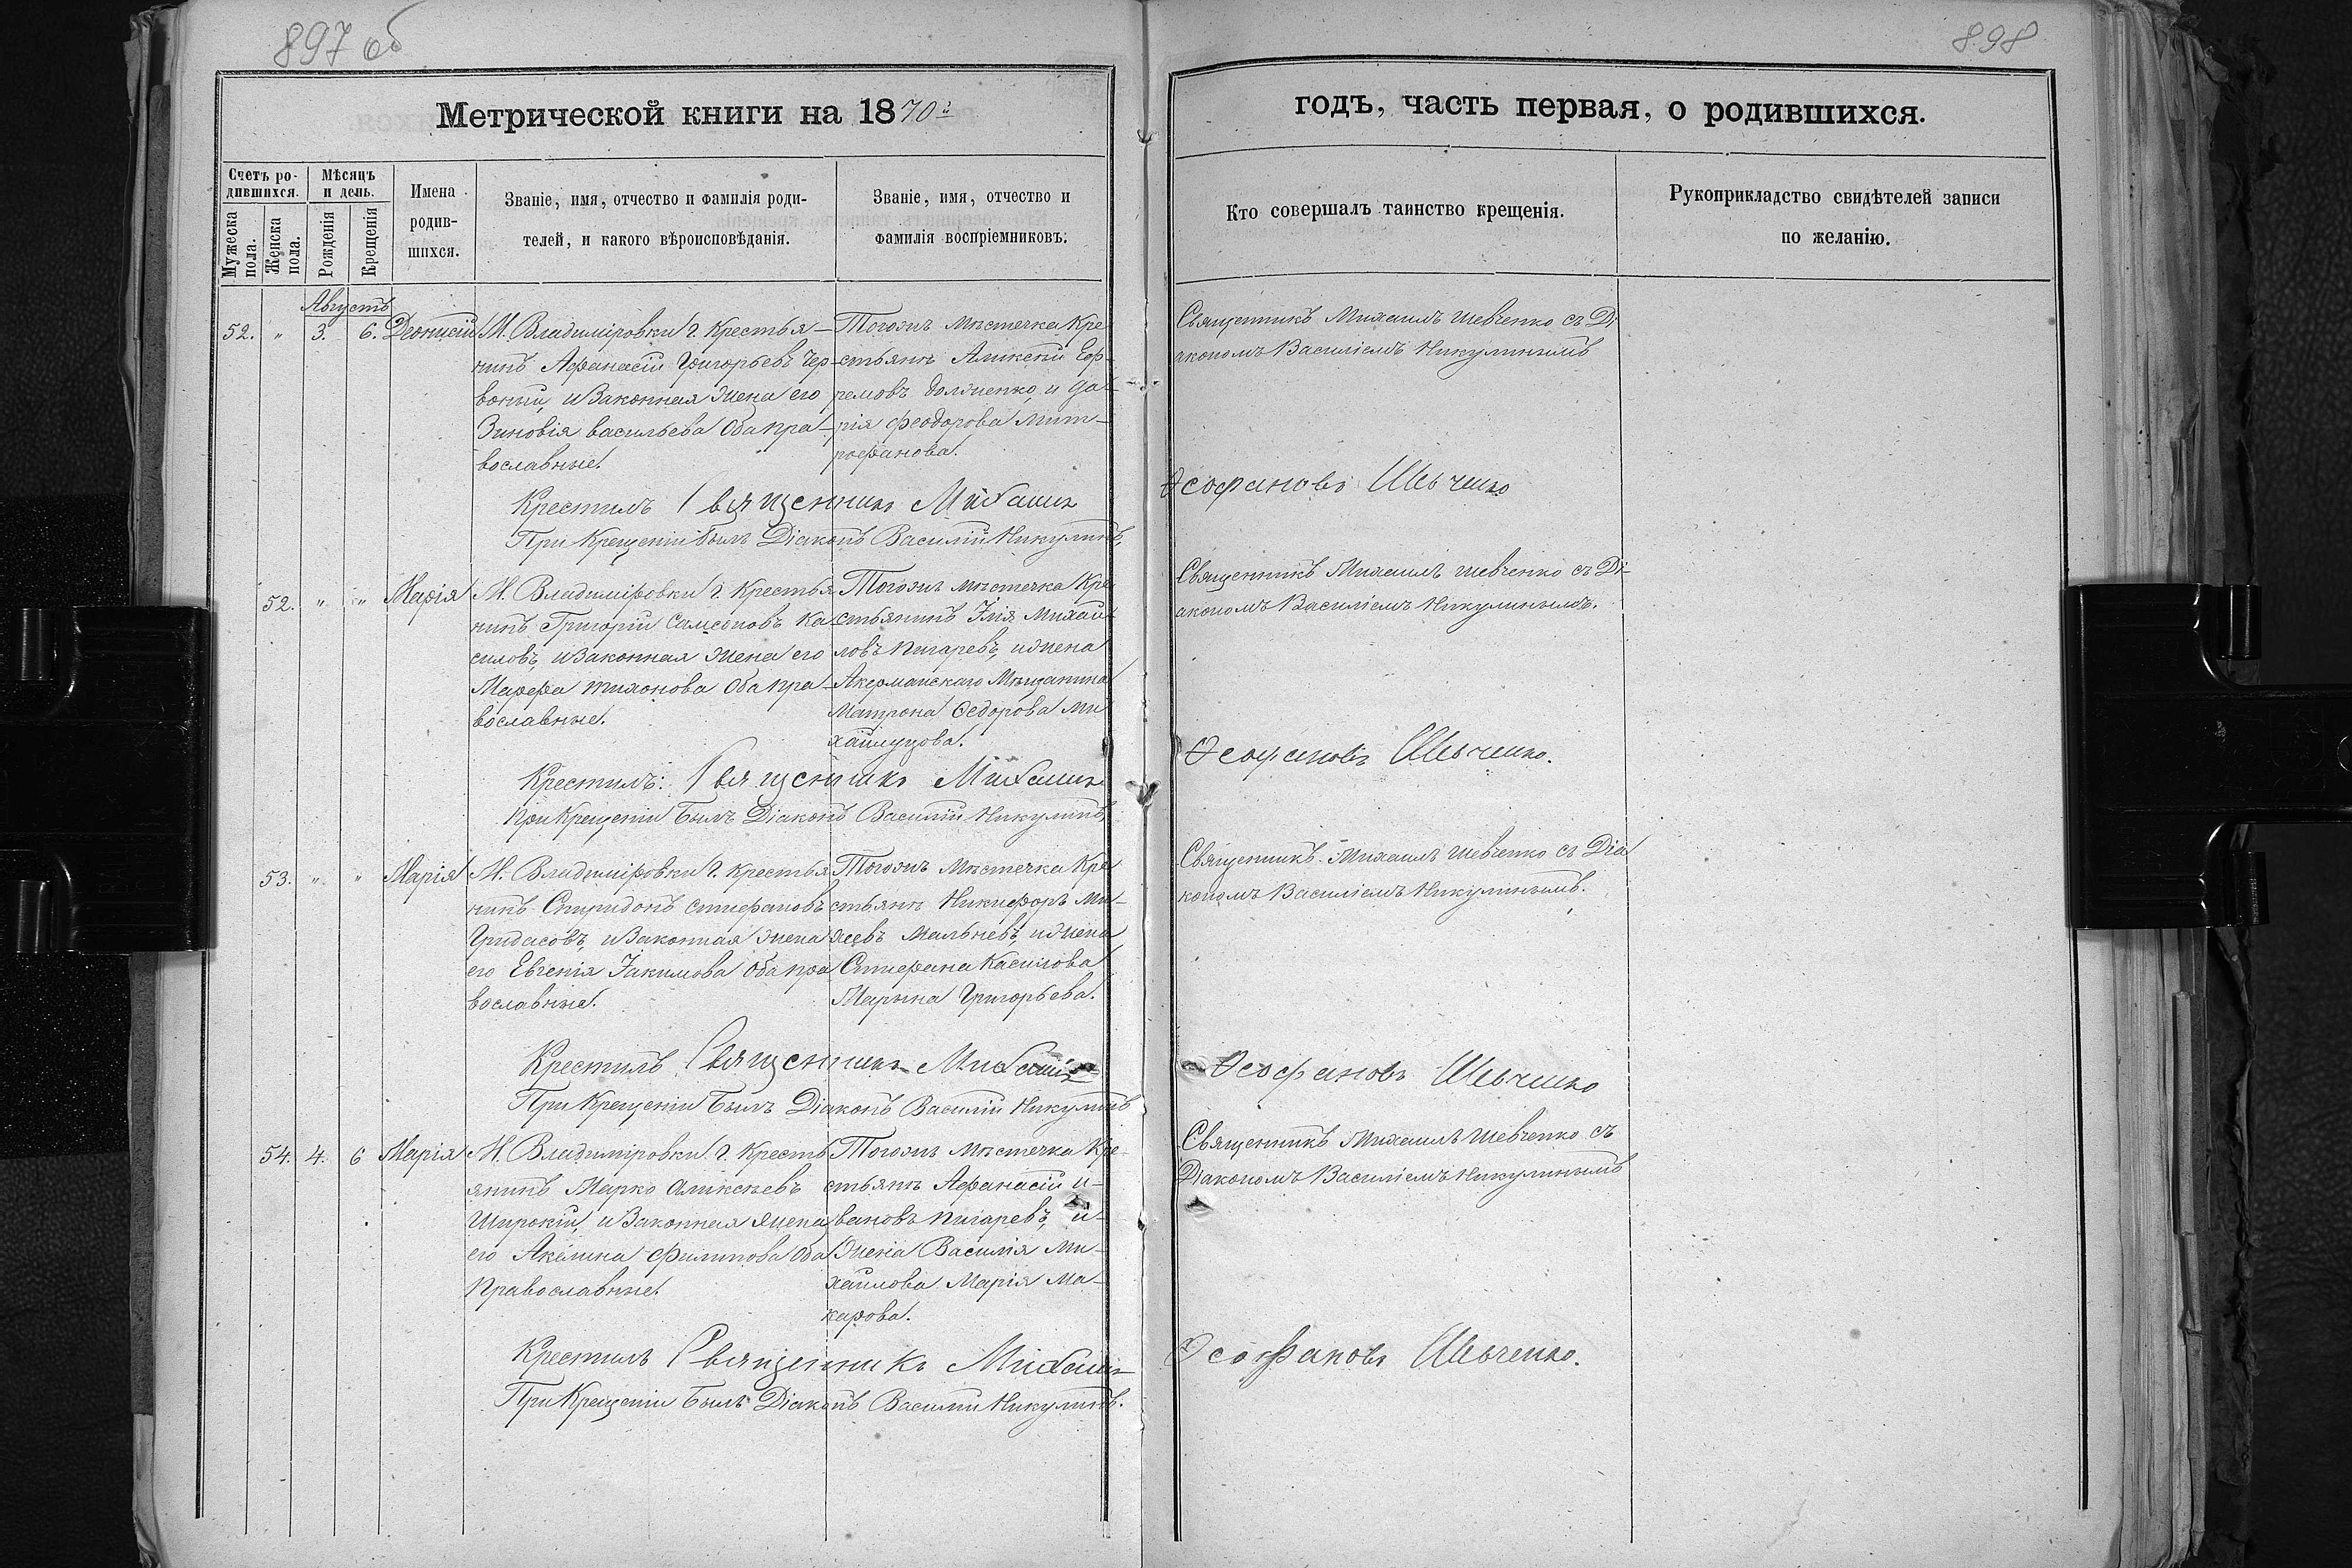 897 об
898
Метрической книги на 1870й
годъ, часть первая, о родившихся.
Счетъ ро-
дившихся.
Мужеска пола.
Женска пола.
Мѣсяцъ
и день.
Рожденія
Крещенія
Имена
родив-
шихся.
Званіе, имя, отчество и фамилія роди-
телей, и какого вѣроисповѣданія.
Званіе, имя, отчество и
фамилія воспріемниковъ.
Кто совершалъ таинство крещенія.
Рукоприкладство свидѣтелей записи
по желанію.
Августъ
52. " 3. 6. Діонисій
М. Владиміровки Г. Крестья-
нинъ Афанасій Григорьевъ Чер-
воный, и Законная Жена его
Зиновія васильева Оба пра-
вославные.
Тогожъ Мѣстечка Кре
стьянъ Аликсѣй Еф-
ремовъ Долженко, и Да-
рія Феодорова Мит-
рофанова.
Священникъ Михаилъ Шевченко съ Ді
акономъ Василіемъ Никулинымъ
Крестилъ Священникъ Михаилъ Ѳеофановъ Шевченко
При Крещеніи былъ Діаконъ Василій Никулинъ.
52. " " Марія
М. Владиміровки Г. Крестья
нинъ Григорій Самсоновъ Ка-
силовъ, и Законная Жена его
Марфа Тихонова Оба пра-
вославные.
Тогожъ Мѣстечка Кре
стьянинъ Илія Михай-
ловъ Пигаревъ, и жена
Акерманскаго Мѣщанина
Матрона Федорова Ми
хайлуцова.
Священникъ Михаилъ Шевченко съ Ді-
акономъ Василіемъ Никулинымъ.
Крестилъ: Священникъ Михаилъ Ѳеофановъ Шевченко.
При Крещеніи Былъ Діаконъ Василій Никулинъ.
53. " " Марія
М. Владиміровки Г. Крестья
нинъ Спиридонъ Стефановъ
Гридасовъ, и Законная Жена
его Евгенія Іакимова Оба пра
вославные.
Тогожъ Мѣстечка Кре
стьянъ Никифоръ Ми-
хеевъ Мальневъ, и жена
Стефана Касилова
Марина Григорьева.
Священникъ Михаилъ Шевченко съ Діа
кономъ Василіемъ Никулинымъ.
Крестилъ Священникъ Михаилъ Ѳеофановъ Шевченко
При Крещеніи Былъ Діаконъ Василій Никулинъ
54. 4. 6 Марія
М. Владиміровки Г. Кресть
янинъ Марко Аликсѣевъ
Широкій, и Законная Жена
его Акилина Филипова Оба
Православные.
Тогожъ Мѣстечка Кре-
стьянъ Афанасій И-
вановъ Пигаревъ, и-
Жена Василія Ми-
хайлова Марія Ма-
карова.
Священникъ Михаилъ Шевченко съ
Діакономъ Василіемъ Никулинымъ
Крестилъ Священникъ Михаилъ Ѳеофановъ Шевченко.
При Крещеніи Былъ Діаконъ Василій Никулинъ.